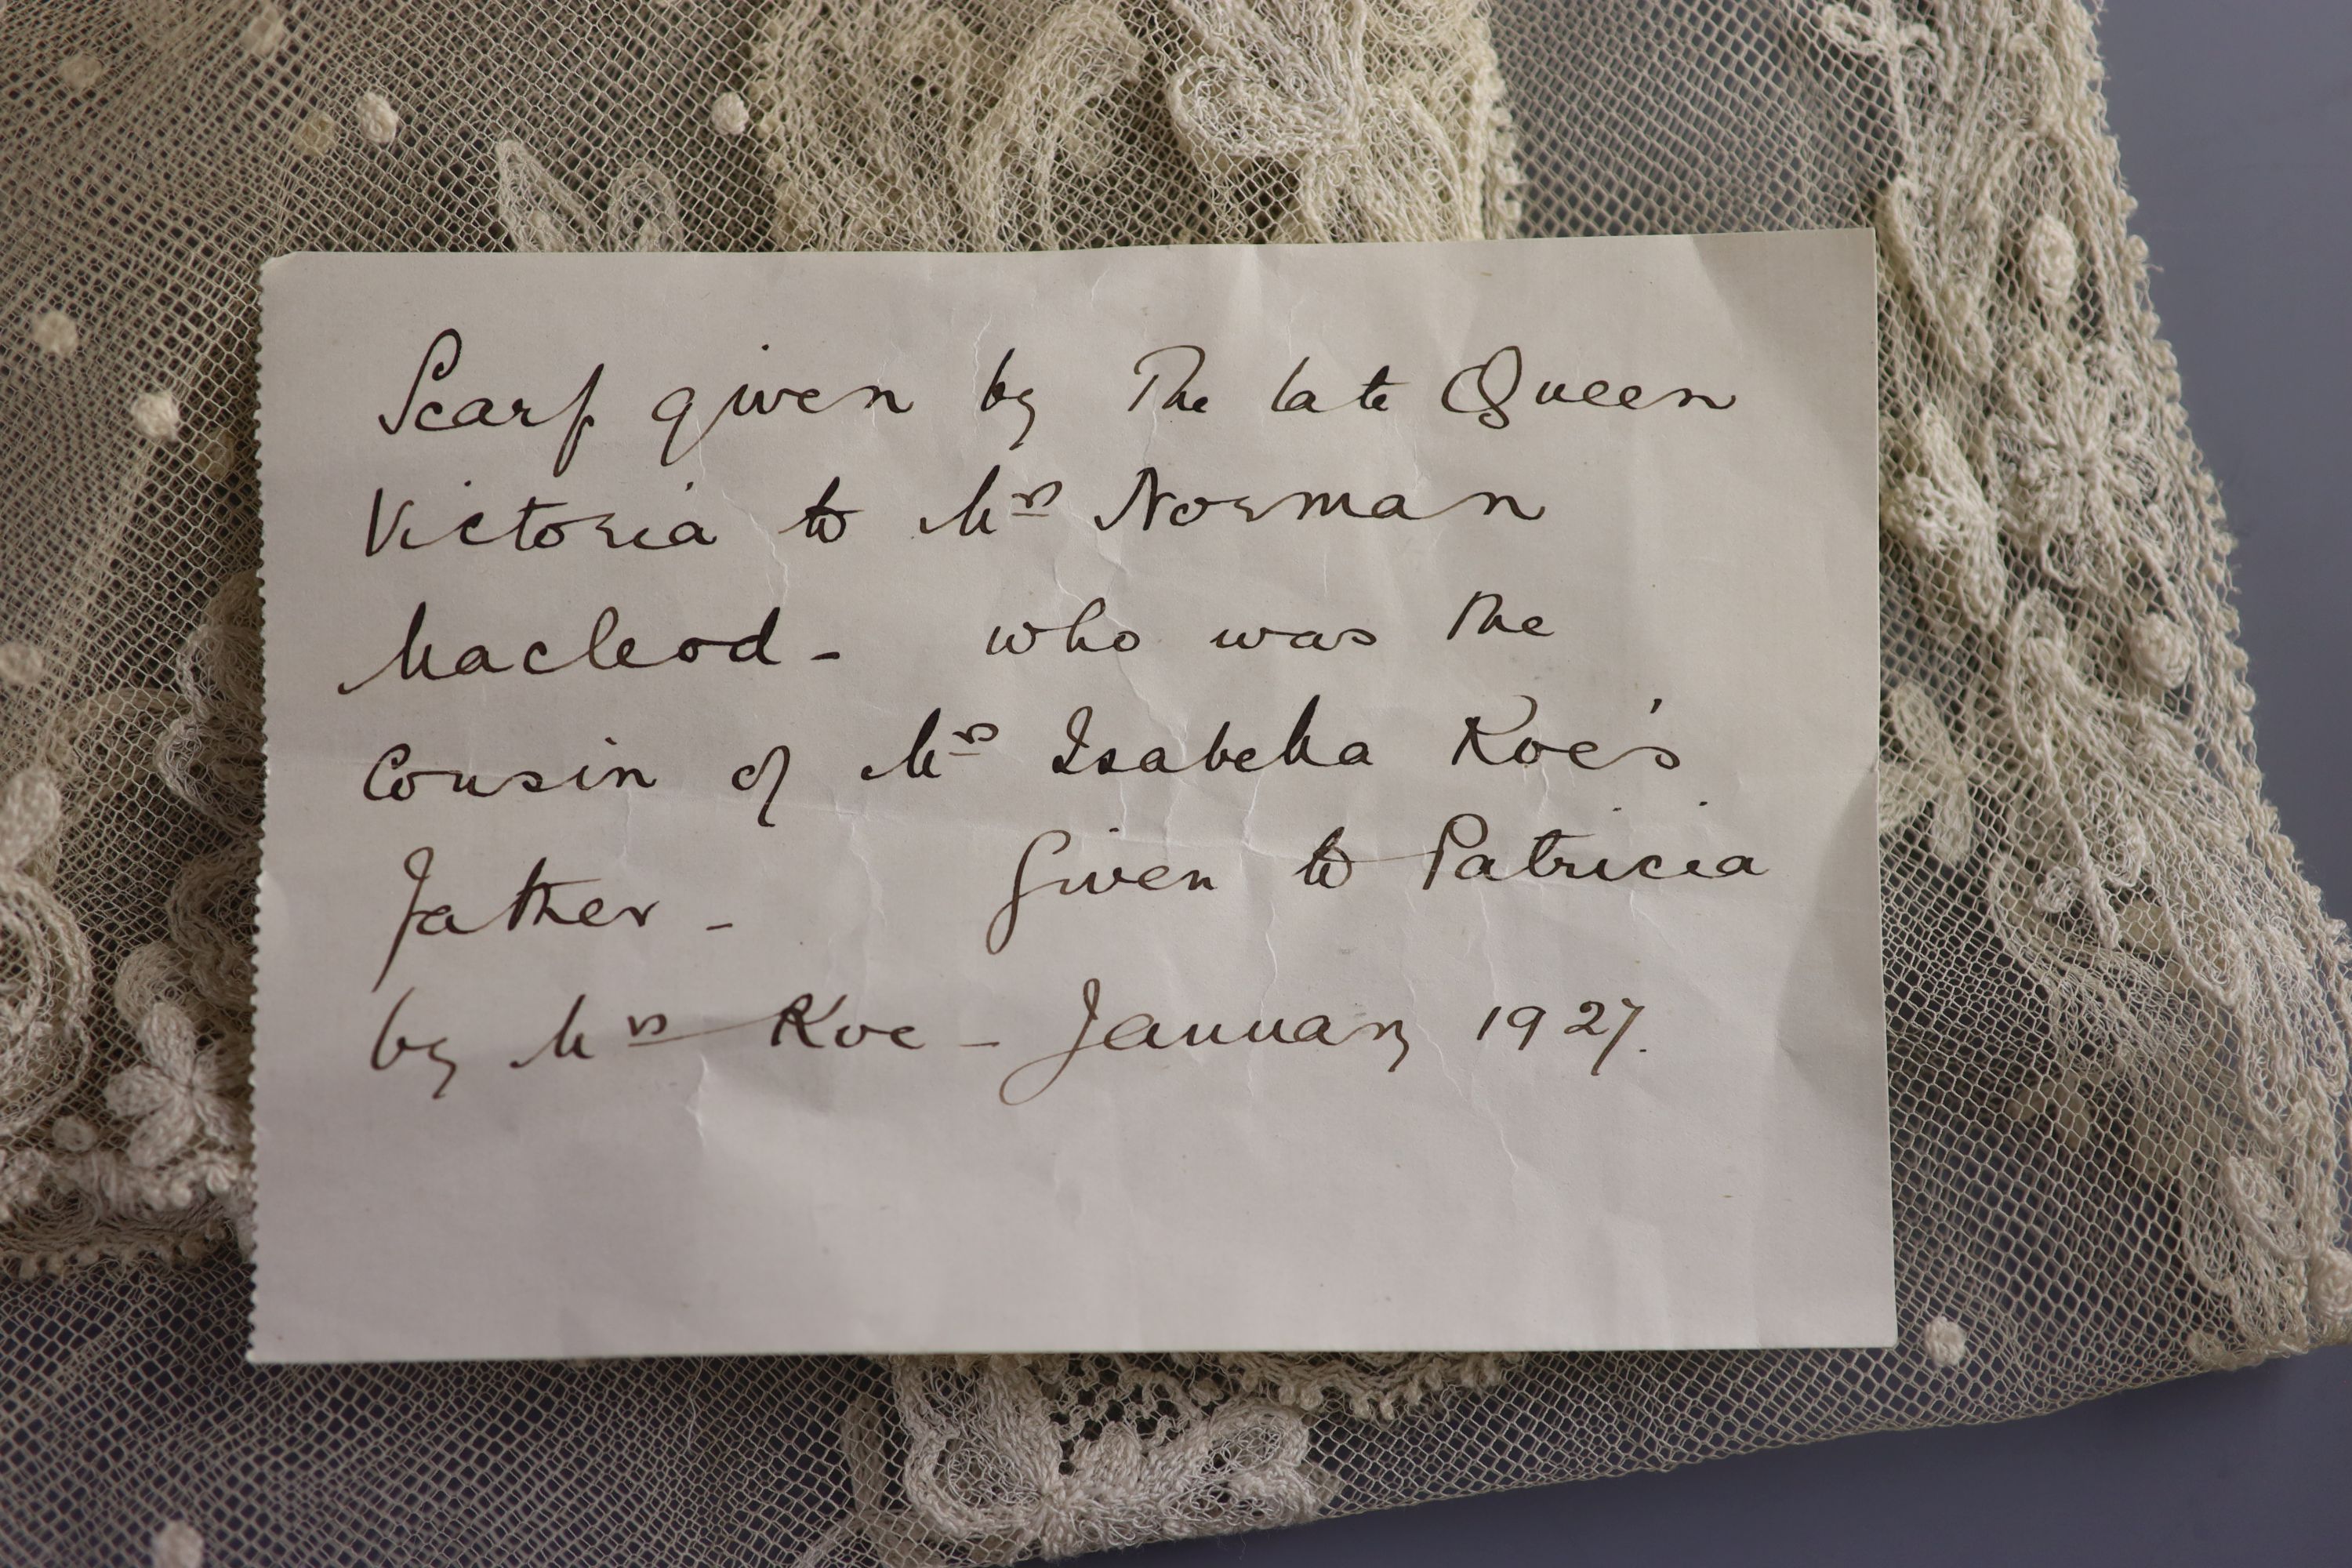 Scarf given by The late Queen
Victoria to Mrs Norman
Macleod - who was the
Cousin of Mrs Isabella Koe's
Father - Given to Patricia
by Mrs Koe - January 1927.